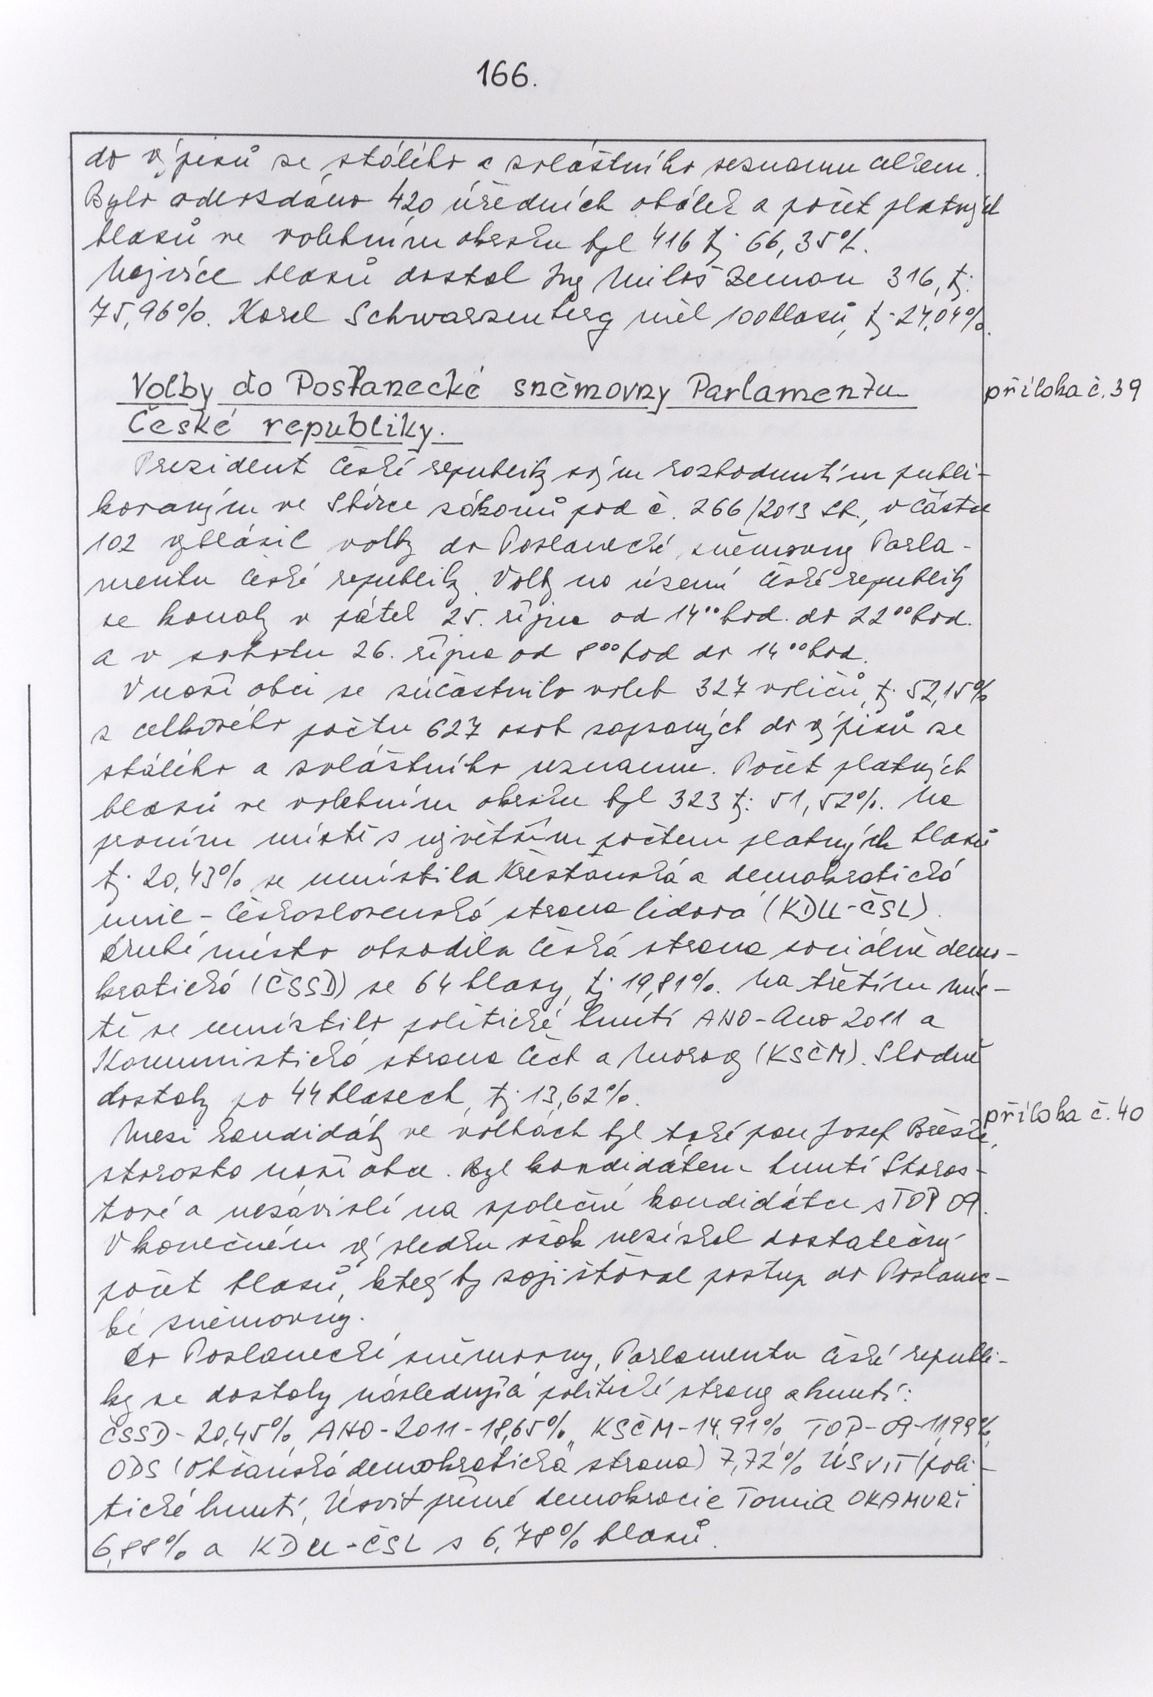 166.
do výpisů se stálého a zvláštního seznamu celkem.
Bylo odevzdáno 420 úředních obálek a počet platných
hlasů ve volebním okrsku byl 416 tj. 66,35%.
Nejvíce hlasů dostal Ing Miloš Zeman 316, tj.
75,96%. Karel Schwarzenberg měl 100 hlasů, tj. 24,04%.
Volby do Poslanecké sněmovny Parlamentu
příloha č. 39
České republiky.
Prezident České republiky svým rozhodnutím publi-
kovaným ve Sbírce zákonů pod č. 266/2013 Sb., v částce
102 vyhlásil volby do Poslanecké sněmovny Parla-
mentu České republiky. Volby na území České republiky
se konaly v pátek 25. října od 14⁰⁰ hod. do 22⁰⁰ hod.
a v sobotu 26. října od 8⁰⁰ hod do 14⁰⁰ hod.
V naší obci se zúčastnilo voleb 327 voličů, tj. 52,15%
z celkového počtu 627 osob zapsaných do výpisů se
stálého a zvláštního seznamu. Počet platných
hlasů ve volebním okrsku byl 323 tj. 51,52%. Na
prvním místě s největším počtem platných hlasů
tj. 20,43% se umístila Křesťanská a demokratická
unie - Československá strana lidová (KDU-ČSL).
Druhé místo obsadila Česká strana sociálně demo-
kratická (ČSSD) se 64 hlasy, tj. 19,81%. Na třetím mís-
tě se umístilo politické hnutí ANO-Ano 2011 a
Komunistická strana Čech a Moravy (KSČM). Shodně
dostaly po 44 hlasech, tj. 13,62%.
příloha č. 40
Mezi kandidáty ve volbách byl také pan Josef
starosta naší obce. Byl kandidátem hnutí Staros-
tové a nezávislí na společné kandidátce s TOP 09.
V konečném výsledku však nezískal dostatečný
počet hlasů, který by zajišťoval postup do Poslanec-
ké sněmovny.
Do Poslanecké sněmovny, Parlamentu České republi-
ky se dostaly následující politické strany a hnutí:
ČSSD - 20,45%, ANO-2011-18,65%, KSČM-14,91%, TOP-09-11,99%,
ODS (Občanská demokratická strana) 7,72% ÚSVIT (poli-
tické hnutí, Úsvit přímé demokracie Tomia OKAMURY
6,88% a KDU-ČSL s 6,78% hlasů.